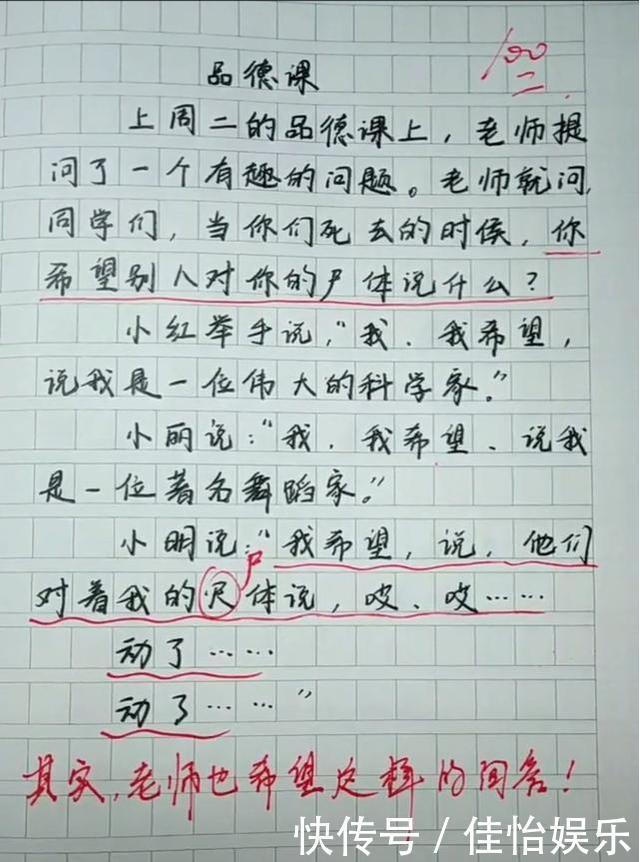 100
品德课
上周二的品德课上，老师提
问了一个有趣的问题。老师就问，
同学们，当你们死去的时候，你
希望别人对你的尸体说什么？
小红举手说，“我．我希望，
说我是一位伟大的科学家。”
小丽说：“我．我希望、说我
是一位著名舞蹈家。”
小明说：“我希望，说，他们
尸
对着我的尺体说，哎、哎……
动了……
动了……”
其实，老师也希望这样的回答！
快传号／佳怡娱乐